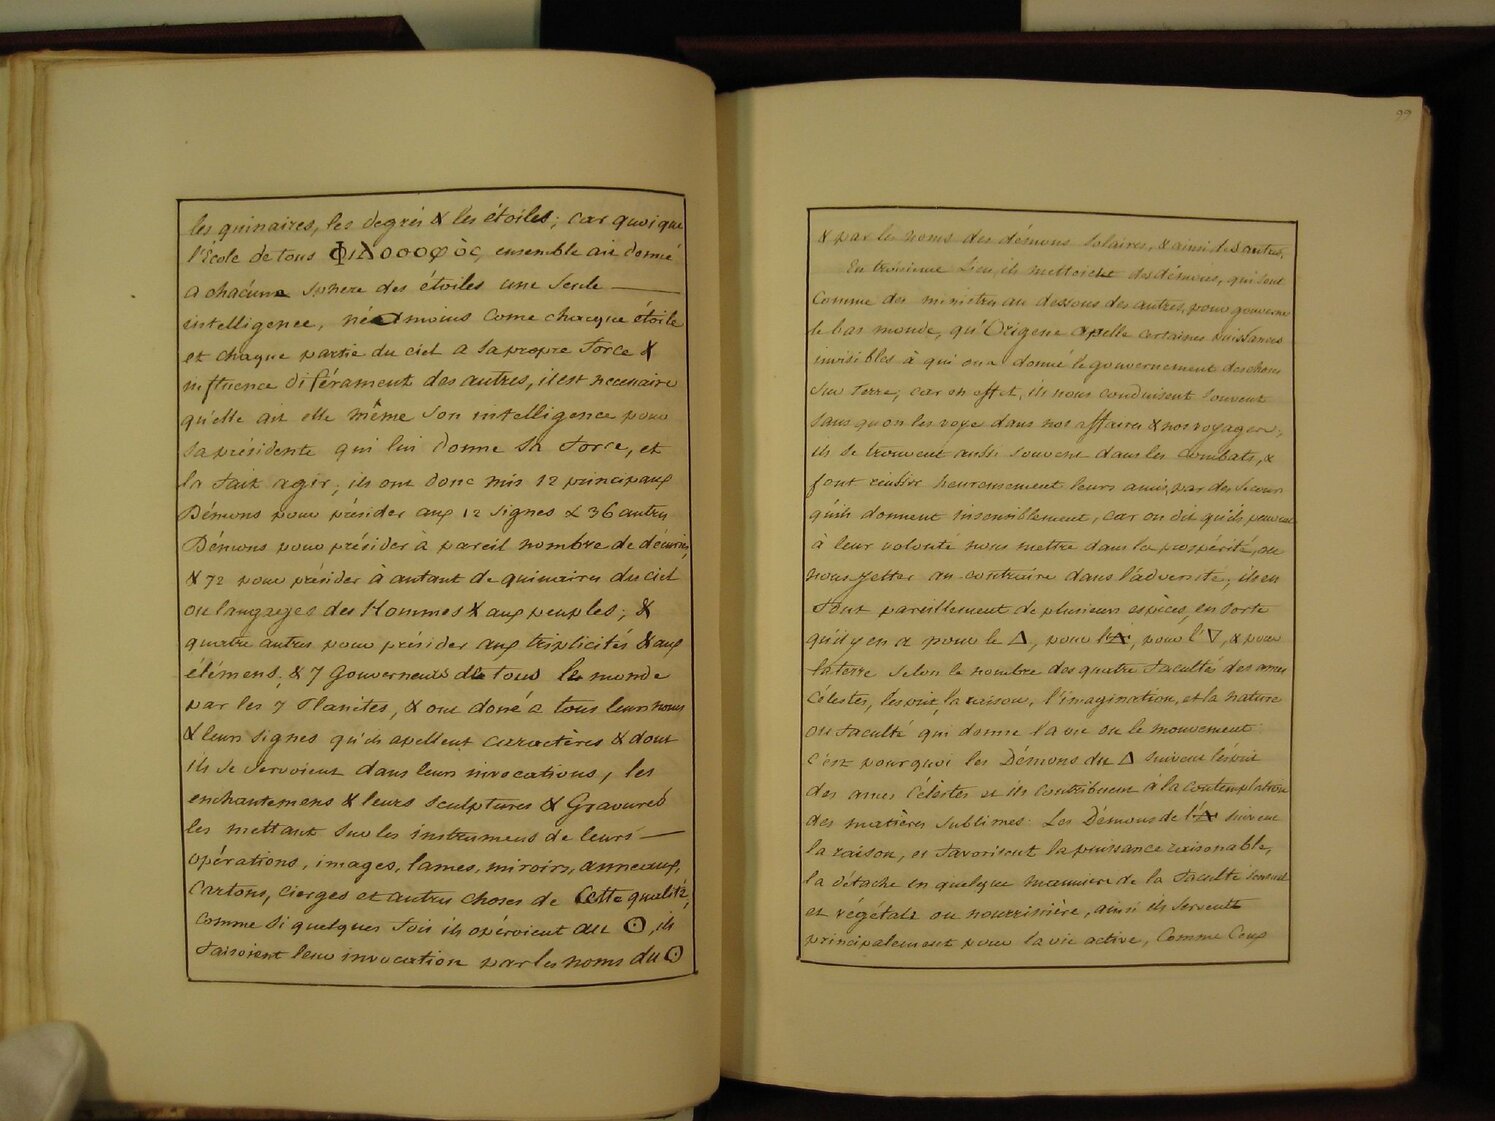 les quinaires, les degrés & les étoiles; car quoique
l'École de tous ΦιΛοσοφὸς, ensemble ait donné
a chacune sphere des étoiles une seule —
intelligence, néamoins come chacque étoile
et chaque partie du ciel a sa propre force &
influence diférament des autres, il est necessaire
qu'elle ait elle même son intelligence pour
sa présidente qui lui donne sa force, et
la fait agir; ils ont donc mis 12 principaux
Démons pour présider aux 12 signes & 36 autres
Démons pour présider à pareil nombre de décuries,
& 72 pour présider à autant de quinaires du ciel
ou langages des Hommes & aux peuples; &
quatre autres pour présider aux triplicités & aux
élémens; & 7 Gouverneurs de tous le monde
par les 7 Planètes, & ont doné a tous leurs noms
& leurs signes qu'ils apellent caractères & dont
ils se servoient dans leurs invocations, les
enchantemens & leurs sculptures & Gravures
les mettant sur les instrumens de leurs —
opérations, images, lames, miroirs, anneaux,
Cartons, cierges et autres choses de Cette qualité,
comme si quelques fois ils opéroient au ☉, ils
faisoient leur invocation par les noms du ☉
99
& par les noms des démons solaires, & ainsi des autres.
En troisieme Lieu, ils mettoient des démons, qui sont
Comme des ministres au dessous des autres, pour gouverner
le bas monde, qu'Origene apelle certaines puissances
invisibles à qui on a donné le gouvernement des choses
sur Terre; car en effet, ils nous conduisent souvent
sans qu'on les voye dans nos affaires & nos voyages;
ils se trouvent aussi souvent dans les combats, &
font réussir heureusement leurs amis, par des secours
qu'ils donnent insensiblement, car on dit qu'ils peuvent
à leur volonté nous mettre dans la prospérité, ou
nous jetter au contraire dans l'adversité; ils en
font pareillement de plusieurs espèces, en sorte
qu'il y en a pour le △, pour l'🜁, pour l'▽, & pour
la terre selon le nombre des quatre facultés des ames
Célestes, l'esprit, la raison, l'imagination, et la nature
ou faculté qui donne la vie ou le mouvement
c'est pourquoi les Démons du △ suivent l'esprit
des ames Célestes et ils contribuent à la contemplation
des matières sublimes. Les Démons de l'🜁 suivent
la raison, et favorisent la puissance raisonable,
la détache en quelque maniere de la faculté sensuel
et végétale ou nourrissière, ainsi ils servent
principalement pour la vie active, Comme Ceux